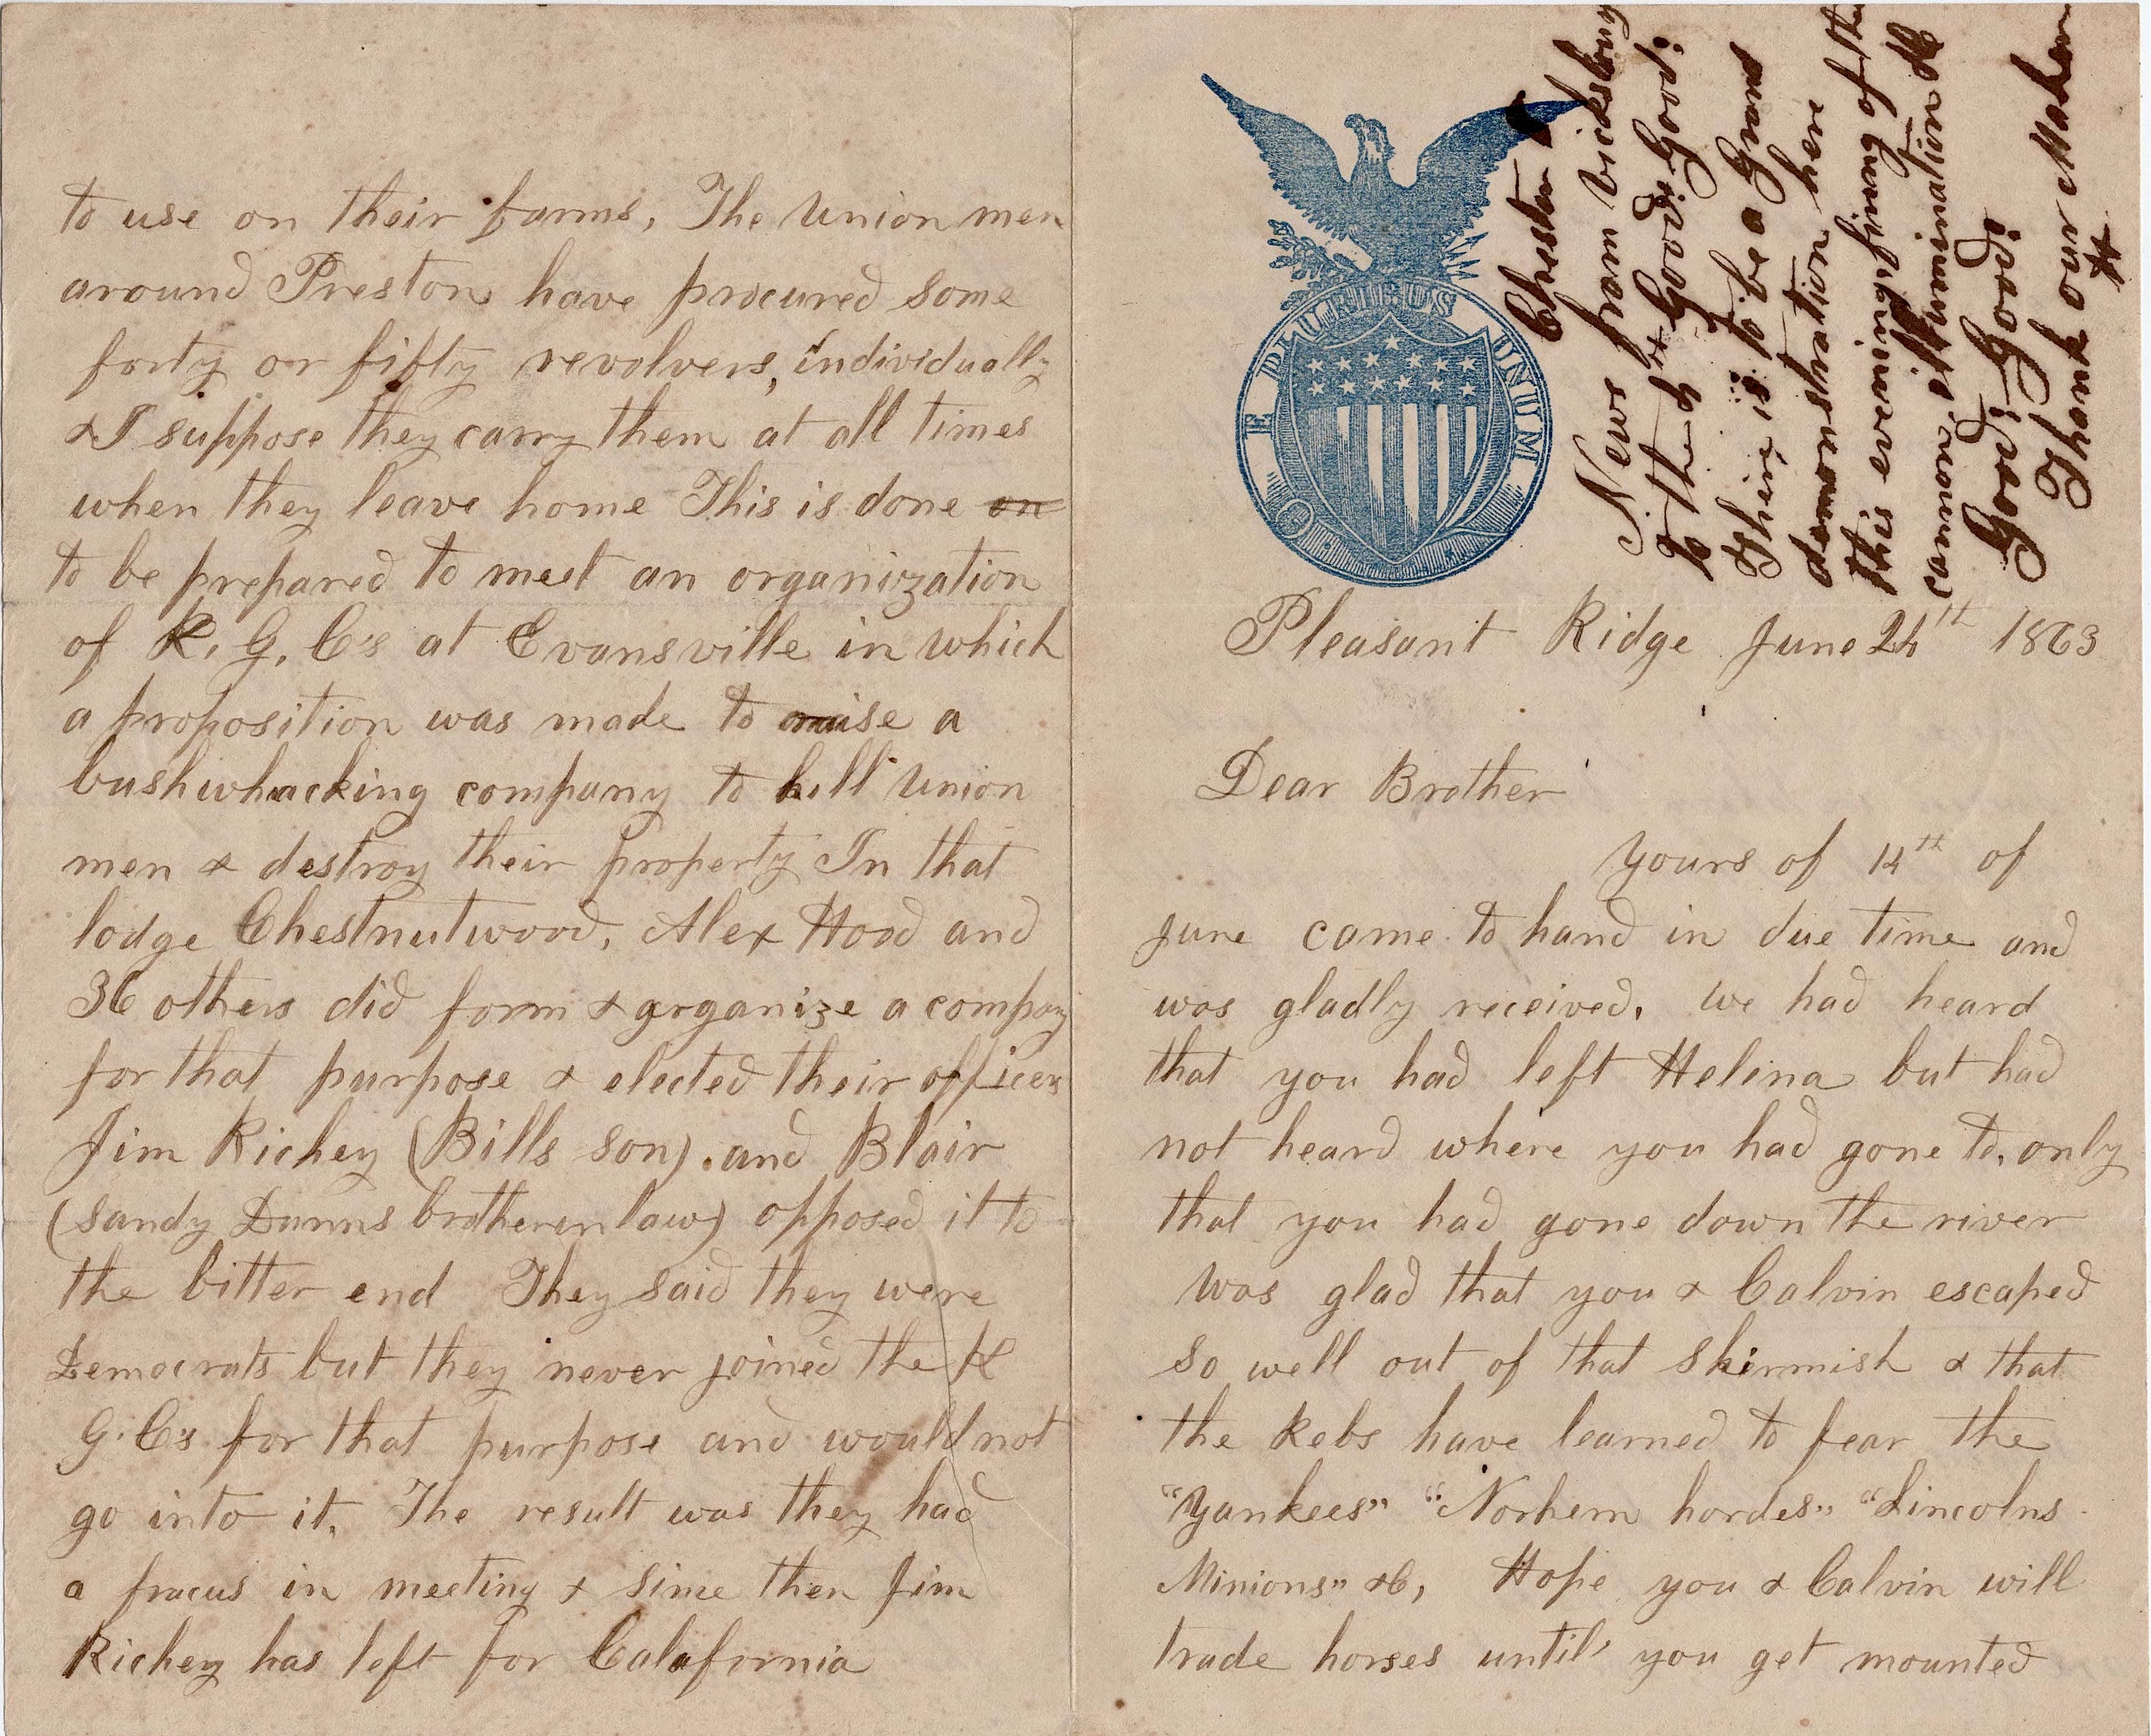 to use on their farms, The Union men
around Preston have procured some
forty or fifty revolvers, individually
& I suppose they carry them at all times
when they leave home This is done on
to be prepared to meet an organization
of K. G. C's at Evansville in which
a proposition was made to raise a
bushwhacking company to kill Union
men & destroy their property In that
lodge Chestnutwood, Alex Hood and
36 others did form & organize a company
for that purpose & elected their officers
Jim Richey (Bills son) and Blair
(Sandy Dunns brotherinlaw) opposed it to
the bitter end They said they were
Democrats but they never joined the K
G. C's for that purpose and would not
go into it, The result was they had
a fracus in meeting & since then Jim
Richey has left for Calafornia
E PLURIBUS UNUM
Chester
News from vicksburg
to the 4th Good! Good!
There is to be a Grand
demonstration here
this eve in firing of the
cannon & illumination &c
Good! Good!
Thank our Maker
Pleasant Ridge June 24th 1863
Dear Brother
Yours of 14th of
June came to hand in due time and
was gladly received, We had heard
that you had left Helena but had
not heard where you had gone to, only
that you had gone down the river
Was glad that you & Calvin escaped
so well out of that skirmish & that
the Rebs have learned to fear the
"Yankees" "Northern hordes" "Lincolns
Minions" &C, Hope you & Calvin will
trade horses until you get mounted